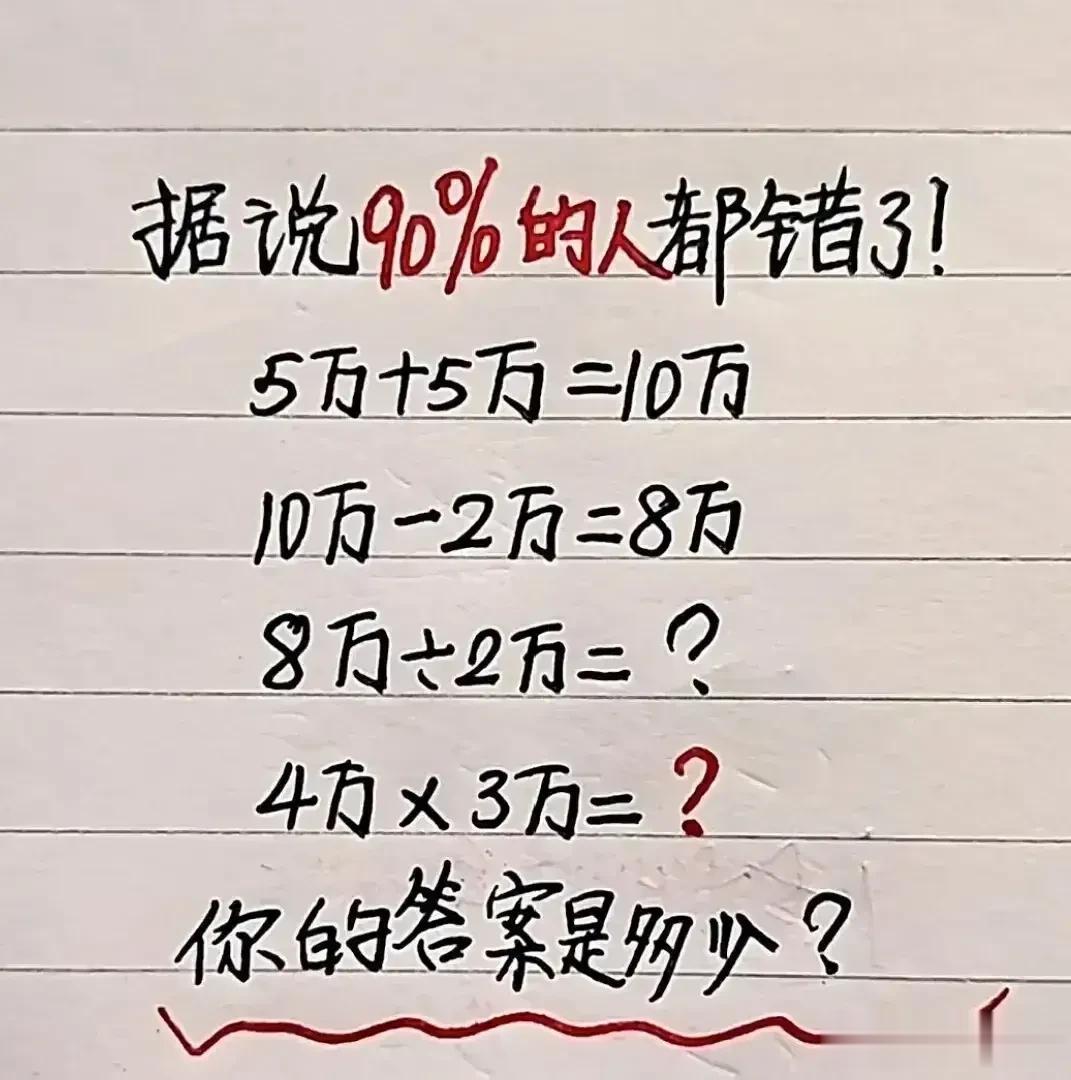 据说90%的人都错了!
5万+5万=10万
10万-2万=8万
8万÷2万=?
4万×3万=?
你的答案是多少?